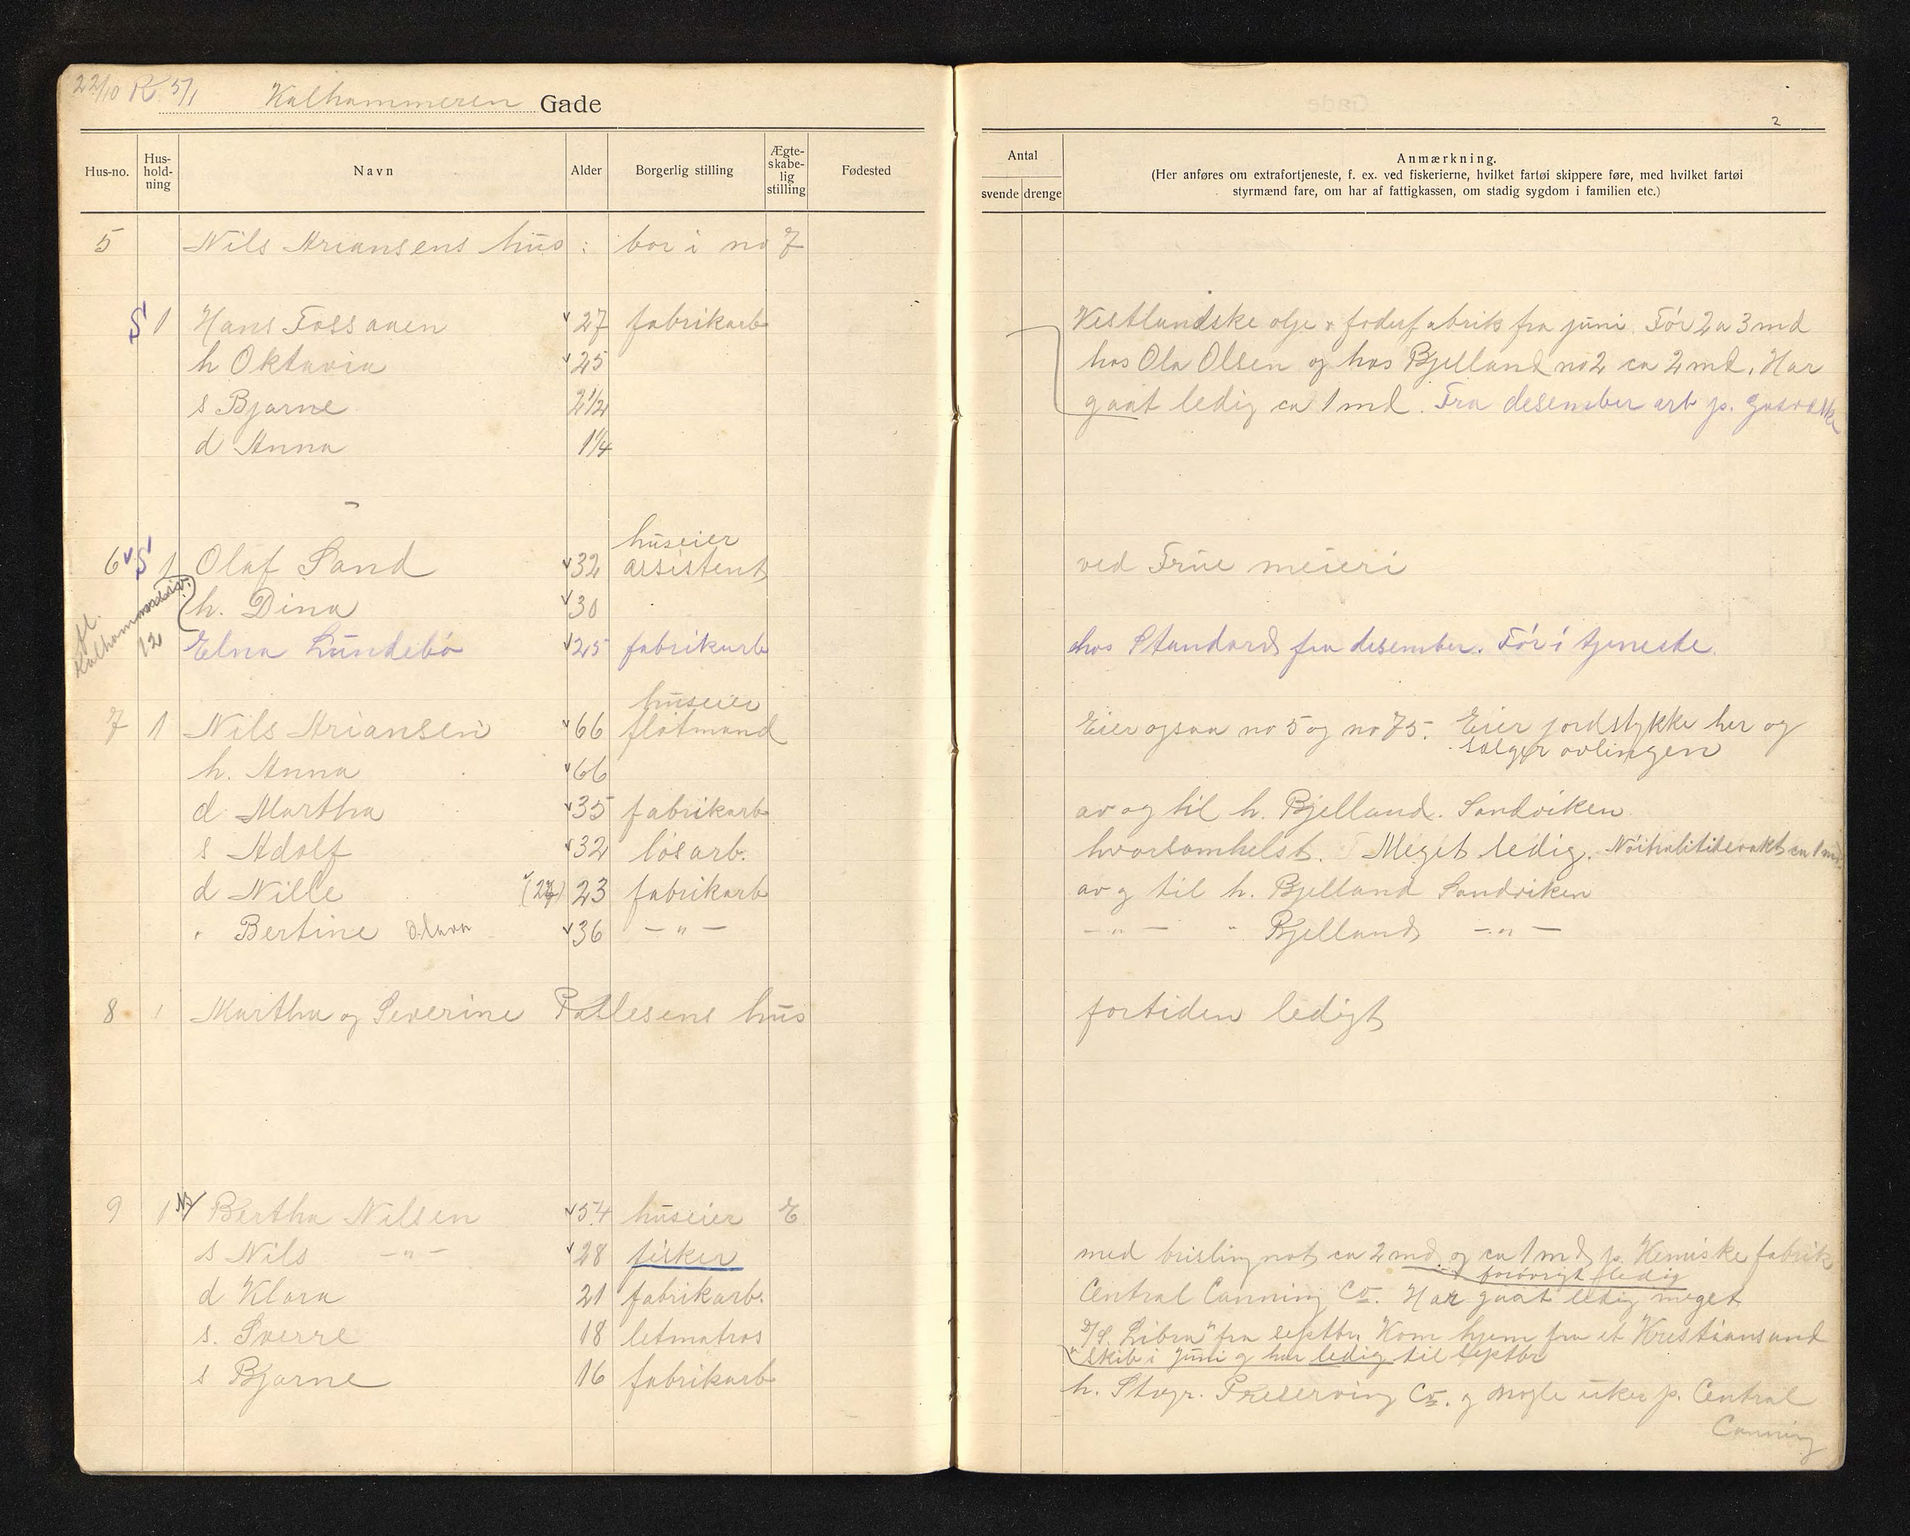 22/10 R 5/1 Kalhammeren Gade
2
Hus-no. Hus-hold-ning Navn Alder Borgerlig stilling Ægte-skabe-lig stilling Fødested
Antal
svende drenge
Anmærkning.
(Her anføres om extrafortjeneste, f. ex. ved fiskerierne, hvilket fartøi skippere føre, med hvilket fartøi
styrmænd fare, om har af fattigkassen, om stadig sygdom i familien etc.)
5 Nils Ariansens hus : bor i no 7
S 1 Hans Fossaaen 27 fabrikarb Vestlandske olje & foderfabrik fra juni. Før 2 a 3 md
h Oktavia 25 hos Ola Olsen og hos Bjelland no 2 ca 2 md. Har
s Bjarne 2 1/2 gaat ledig ca 1 md. Fra desember arb p.
d Anna 1 1/4
huseier
6 S 1 Olaf Sand 32 assistent ved Frue meieri
h. Dina 30
12 Elna Lundebø 25 fabrikarb hos Standard fra desember. Før i tjeneste.
huseier
7 1 Nils Ariansen 66 flotmand Eier ogsaa no 5 og no 75. Eier jordstykke her og
sælger avlingen
h. Anna 66
d Martha 35 fabrikarb av og til h. Bjelland. Sandviken
s Adolf 32 løsarb. hvorsomhelst. Meget ledig. Nöitralitetsvakt ca 1 md
d Nille (24) 23 fabrikarb av og til h. Bjelland Sandviken
" Bertine Olava 36 — " — — " — " Bjelland — " —
8 1 Martha og Severine Pallesens hus fortiden ledigt
9 1 Bertha Nilsen 54 huseier E
s Nils — " — 28 fisker med brislingnot ca 2 md og ca 1 md p. Kemiske fabrik
forøvrigt ledig
d Klara 21 fabrikarb. Central Canning Co. Har gaat ledig meget
s. Sverre 18 letmatros D/S. "Libra" fra septbr. Kom hjem fra et Kristiansand
skib i juni og har ledig til septbr
s Bjarne 16 fabrikarb h. Stavgr. Preserving Co. og nogle uker p. Central
Canning